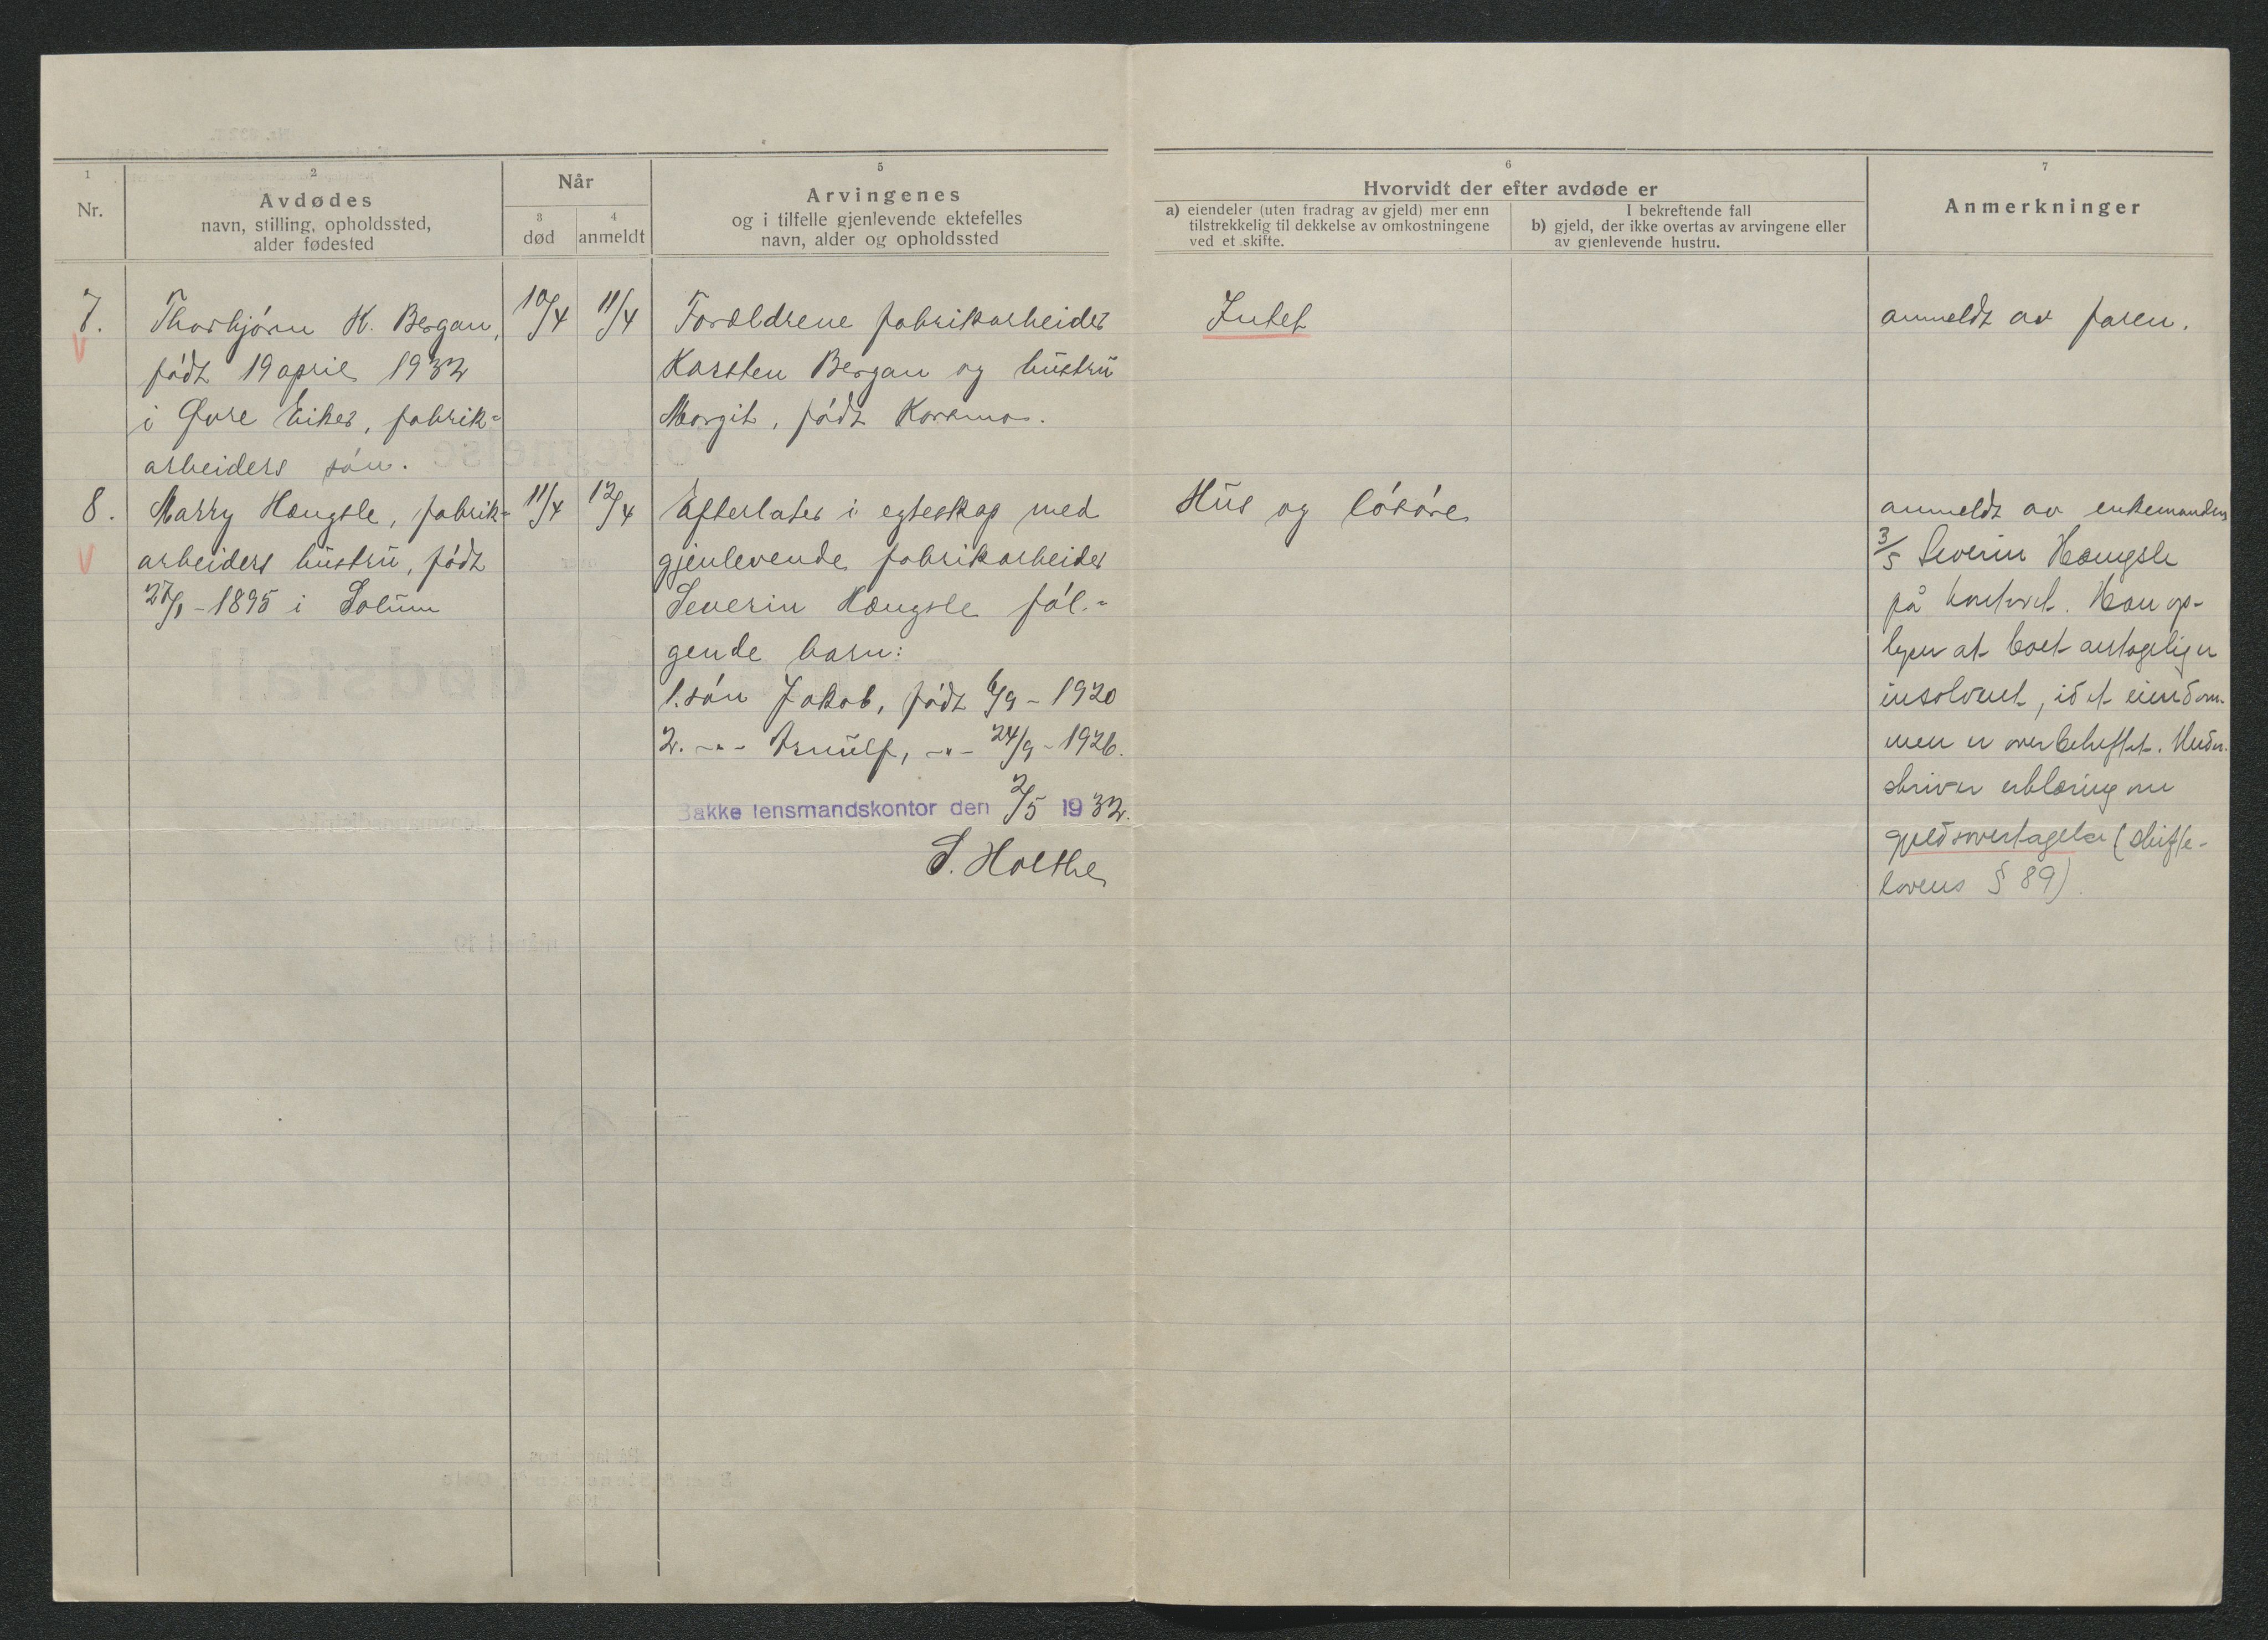 1
Nr.
2
Avdødes
navn, stilling, opholdssted,
alder fødested
Når
3
død
4
anmeldt
5
Arvingenes
og i tilfelle gjenlevende ektefelles
navn, alder og opholdssted
6
Hvorvidt der efter avdøde er
a) eiendeler (uten fradrag av gjeld) mer enn
tilstrekkelig til dekkelse av omkostningene
ved et skifte.
I bekreftende fall
b) gjeld, der ikke overtas av arvingene eller
av gjenlevende hustru.
7
Anmerkninger
7.
V
Thorbjørn K. Bergan,
født 19 april 1932
i Øvre Eiker, fabrik-
arbeiders søn.
10/4
11/4
Forældrene fabrikarbeider
Karsten Bergan og hustru
Margit, født
Intet
anmeldt av faren.
8.
V
Marry Hængsle, fabrik-
arbeiders hustru, født
27/1 - 1895 i Solum
11/4
12/4
Efterlater i egteskap med
gjenlevende fabrikarbeider
Severin Hængsle føl-
gende barn:
1. søn Jakob, født 6/9 - 1920
2. -"- Arnulf, -"- 24/9 - 1926.
Bakke lensmandskontor den 2/5 1932.
S. Holthe
Hus og løsøre
anmeldt av enkemanden
3/5 Severin Hængsle
på kontoret. Han op-
lyser at boet antagelig er
insolvent, idet eiendom-
men er overbeheftet. Under-
skriver erklæring om
gjeldsovertagelse (skifte-
lovens § 89).